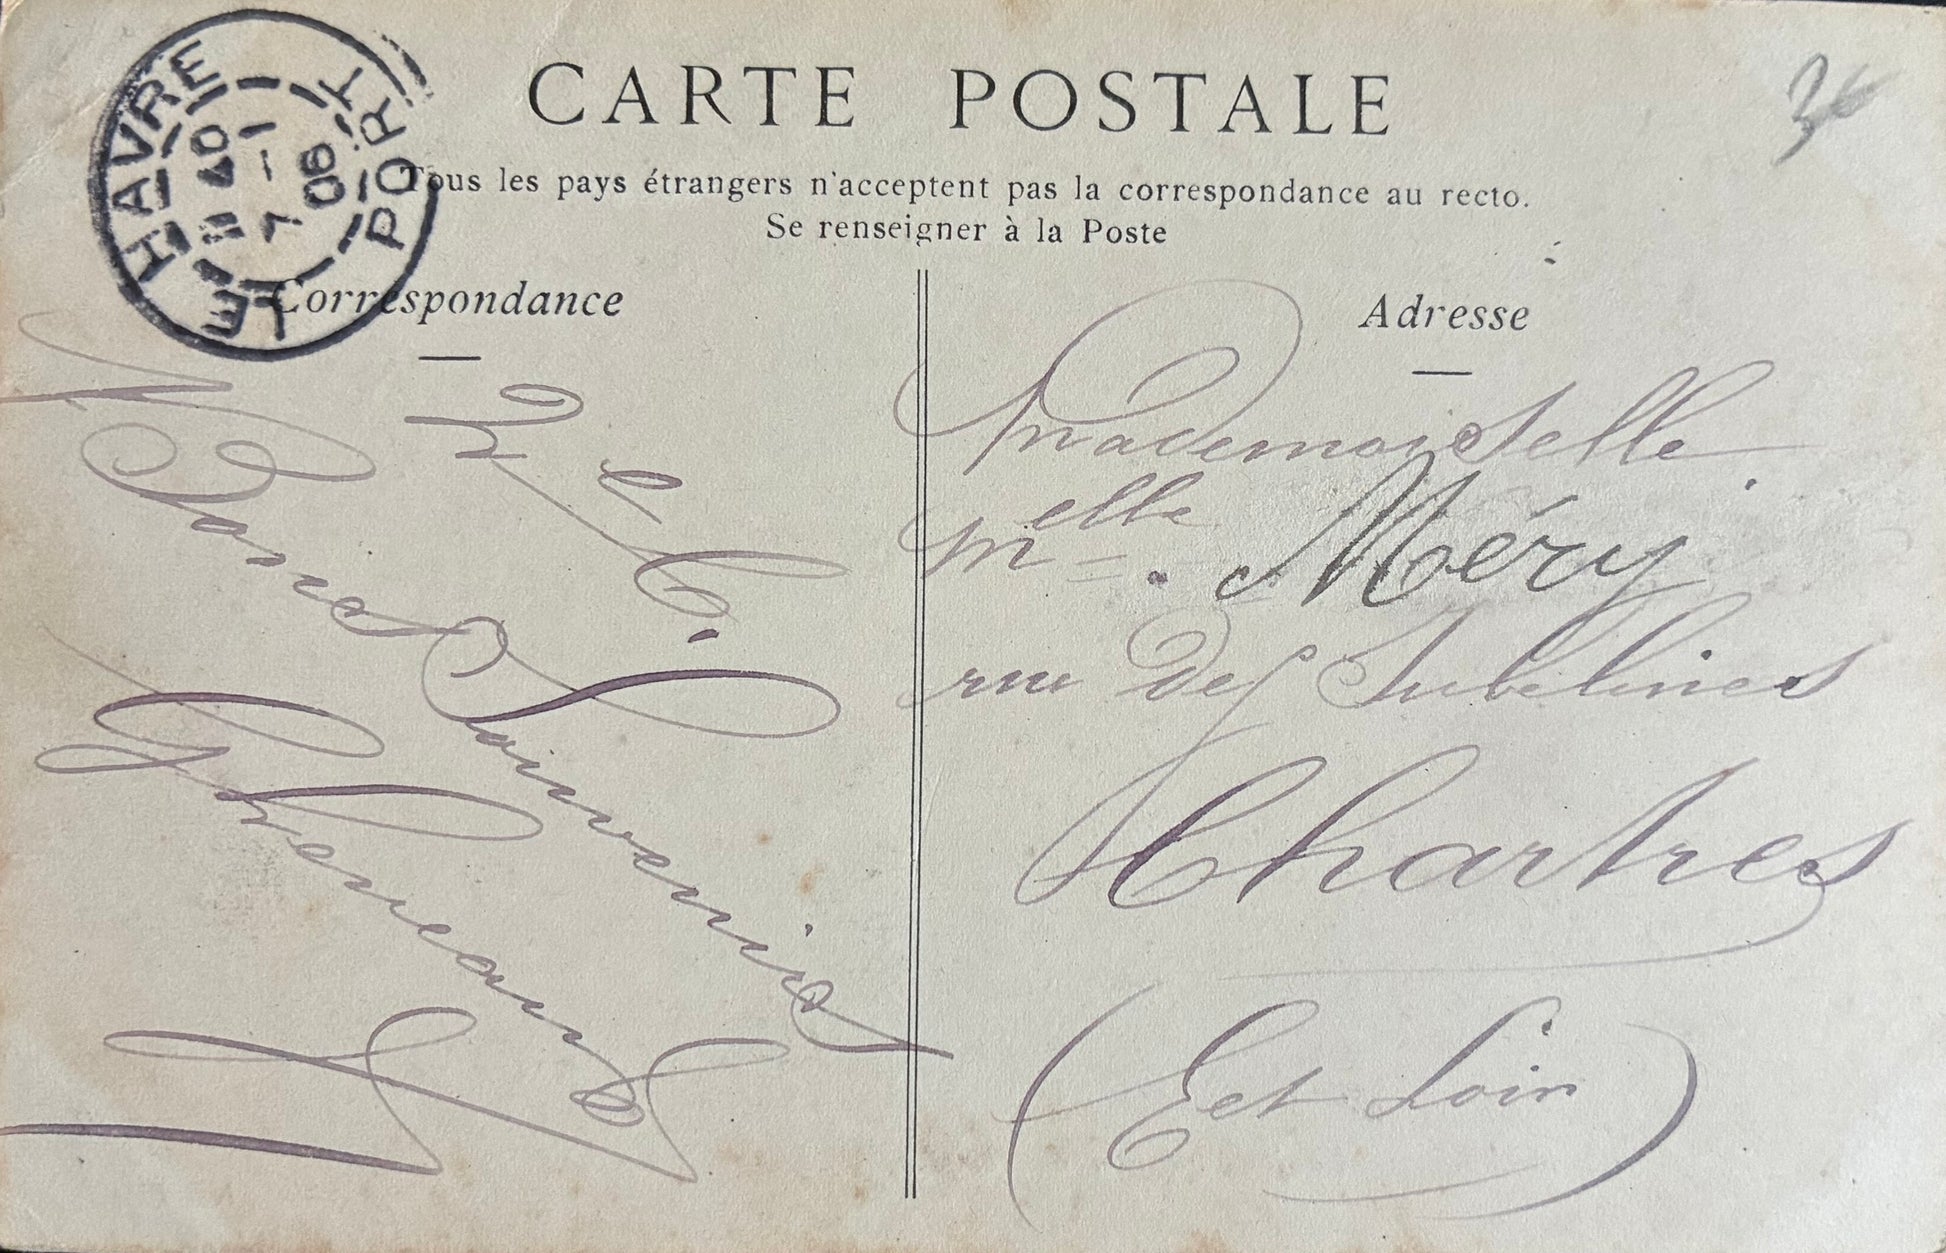 CARTE POSTALE
Tous les pays étrangers n'acceptent pas la correspondance au recto.
Se renseigner à la Poste
LE HAVRE PORT
11 40
7 - 1
08
36
Correspondance
Bons Souvenirs
Adresse
Mademoiselle
Melle. Méry
rue des Jubelines
Chartres
(Eet Loir)